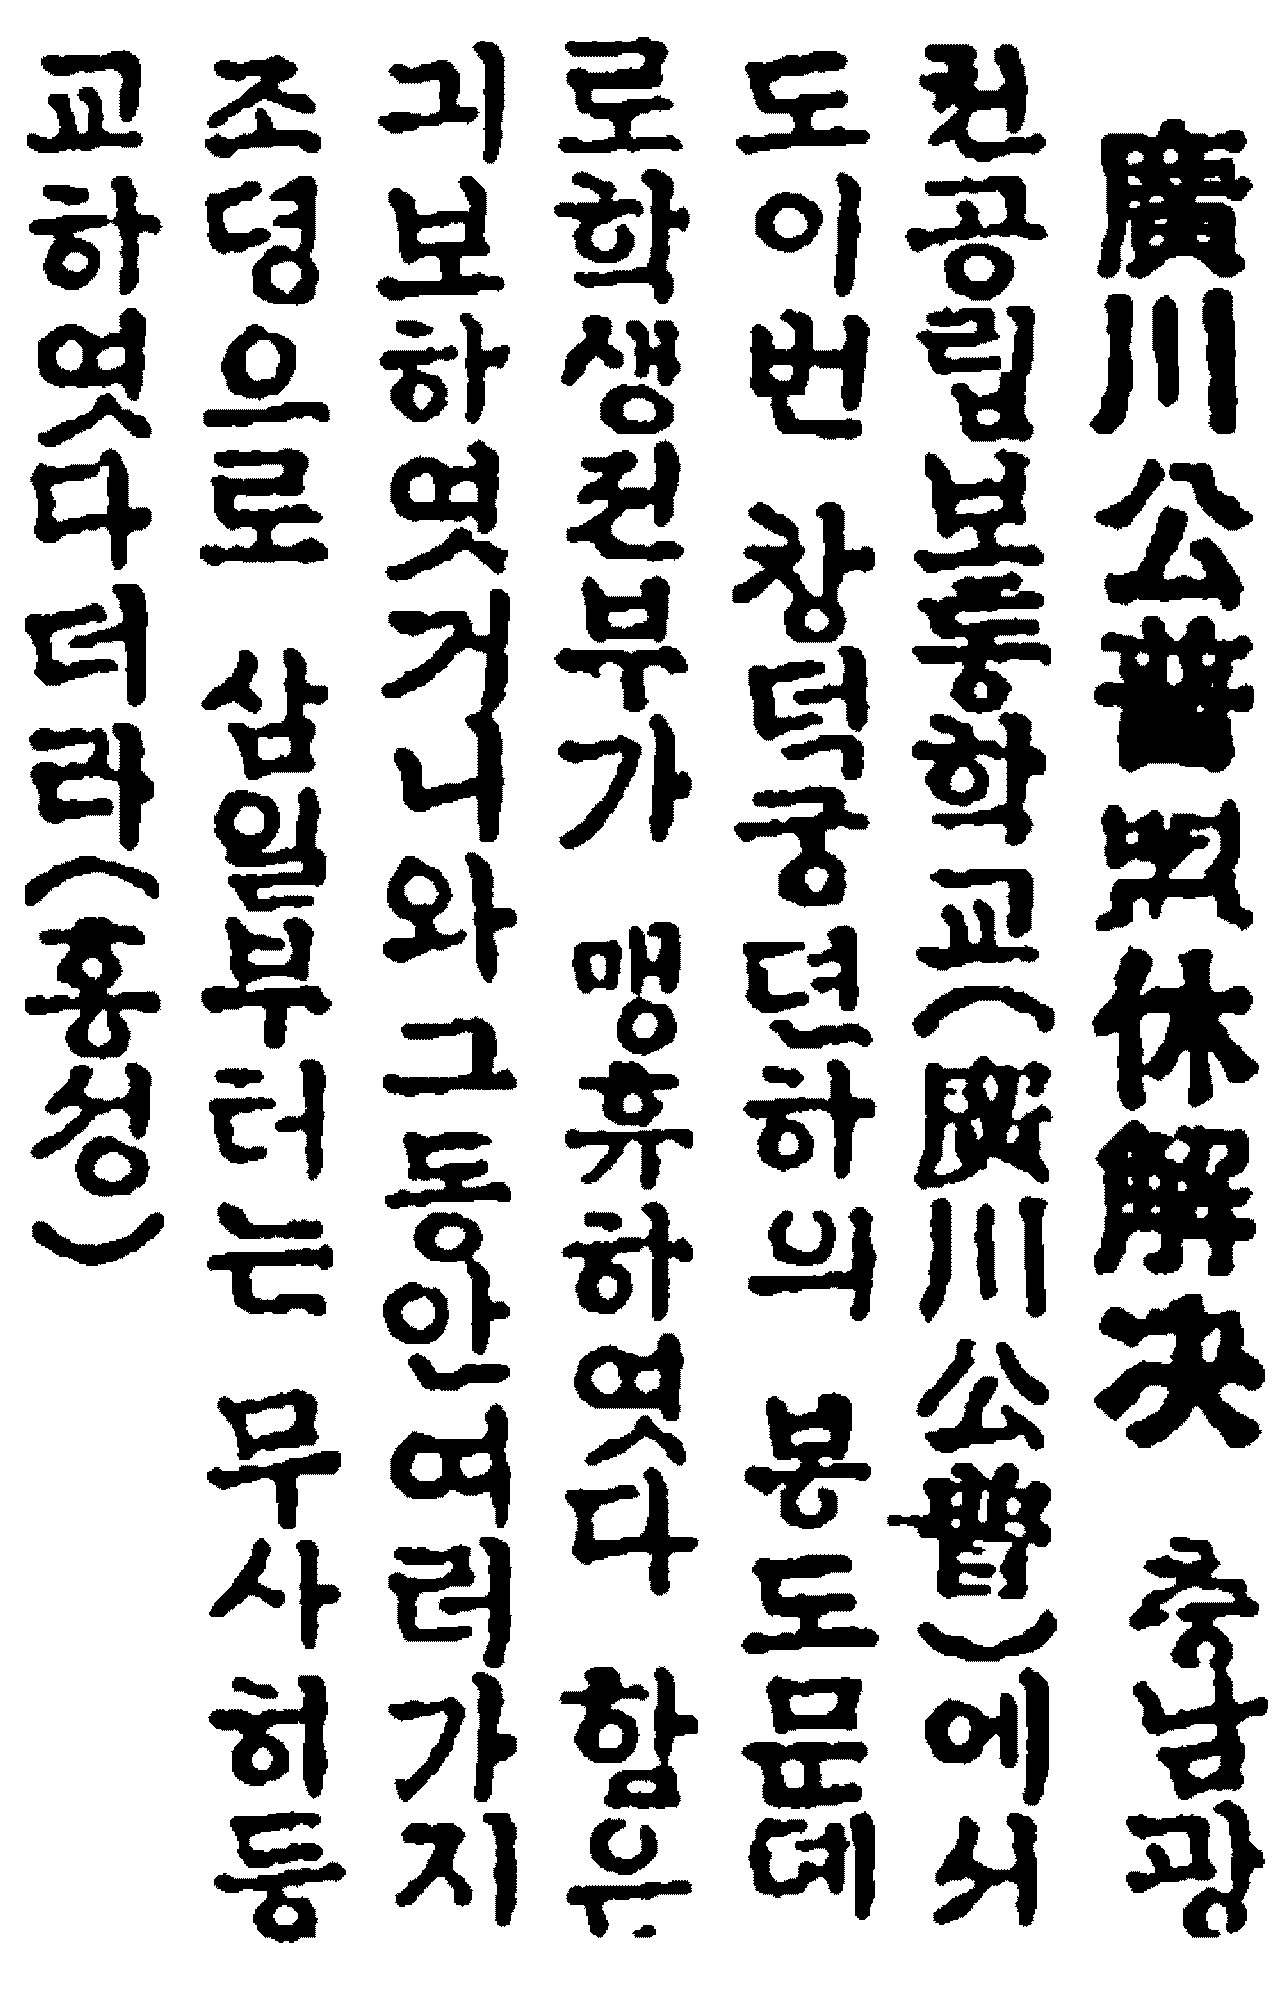 廣川公普盟休解決 충남광
천공립보통학교(廣川公普)에서
도이번 창덕궁뎐하의 봉도문뎨
로학생전부가 맹휴하엿다 함은
긔보하엿거니와그동안여러가지
조뎡으로 삼일부터는 무사히등
교하엿다더라(홍성)